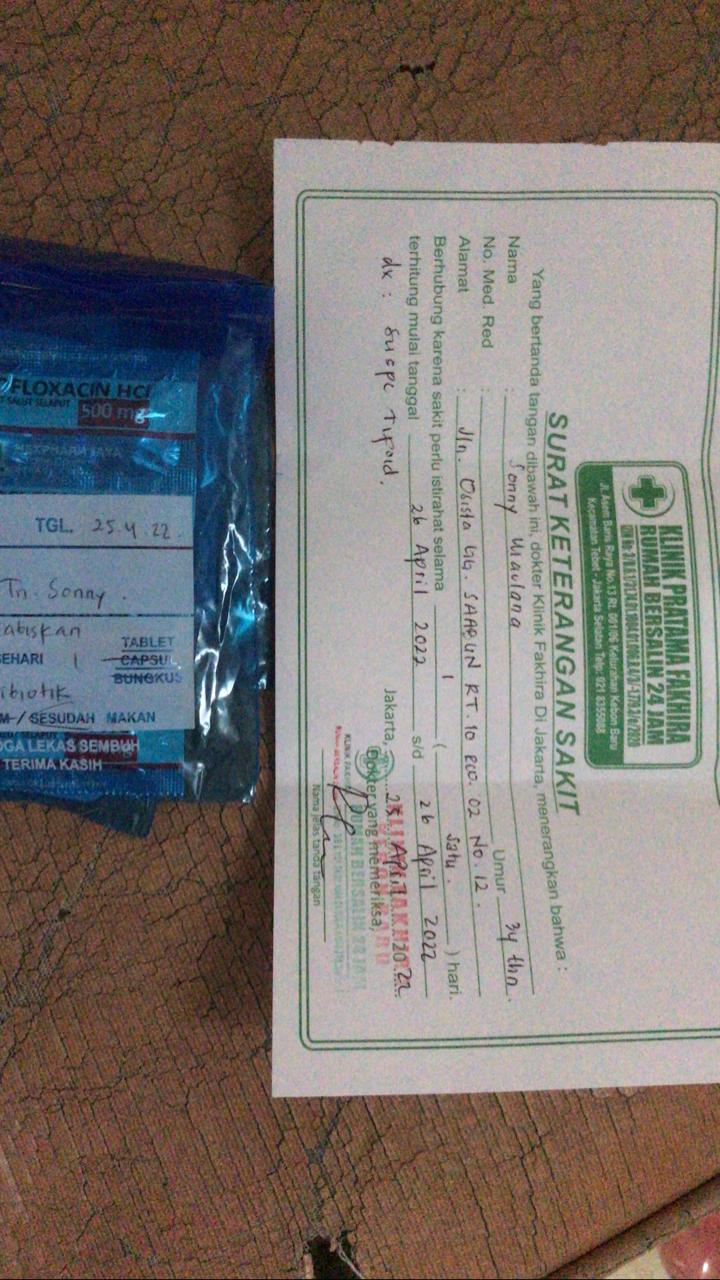 KLINIK PRATAMA FAKHIRA
RUMAH BERSALIN 24 JAM
Jl. Asem Baris Raya No.13 Rt. 001/06 Kelurahan Kebon Baru
Kecamatan Tebet - Jakarta Selatan Telp: 021 8355008
SURAT KETERANGAN SAKIT
Yang bertanda tangan dibawah ini, dokter Klinik Fakhira Di Jakarta, menerangkan bahwa :
Nama : Sonny Maulana Umur 34 thn.
No. Med. Red :
Alamat : Jln. Otista GG. SAARUN RT. 10 RW. 02 No. 12.
Berhubung karena sakit perlu istirahat selama 1 ( satu. ) hari.
terhitung mulai tanggal 26 April 2022 s/d 26 April 2022
dx : suspc Tipoid.
Jakarta, 25 April 2022
Dokter yang memeriksa,
Nama jelas tanda tangan
FLOXACIN HCl
500 mg
TGL. 25.4.22.
Tn. Sonny.
abiskan
EHARI 1 TABLET
CAPSUL
BUNGKUS
ibiotik
M / SESUDAH MAKAN
OGA LEKAS SEMBUH
TERIMA KASIH